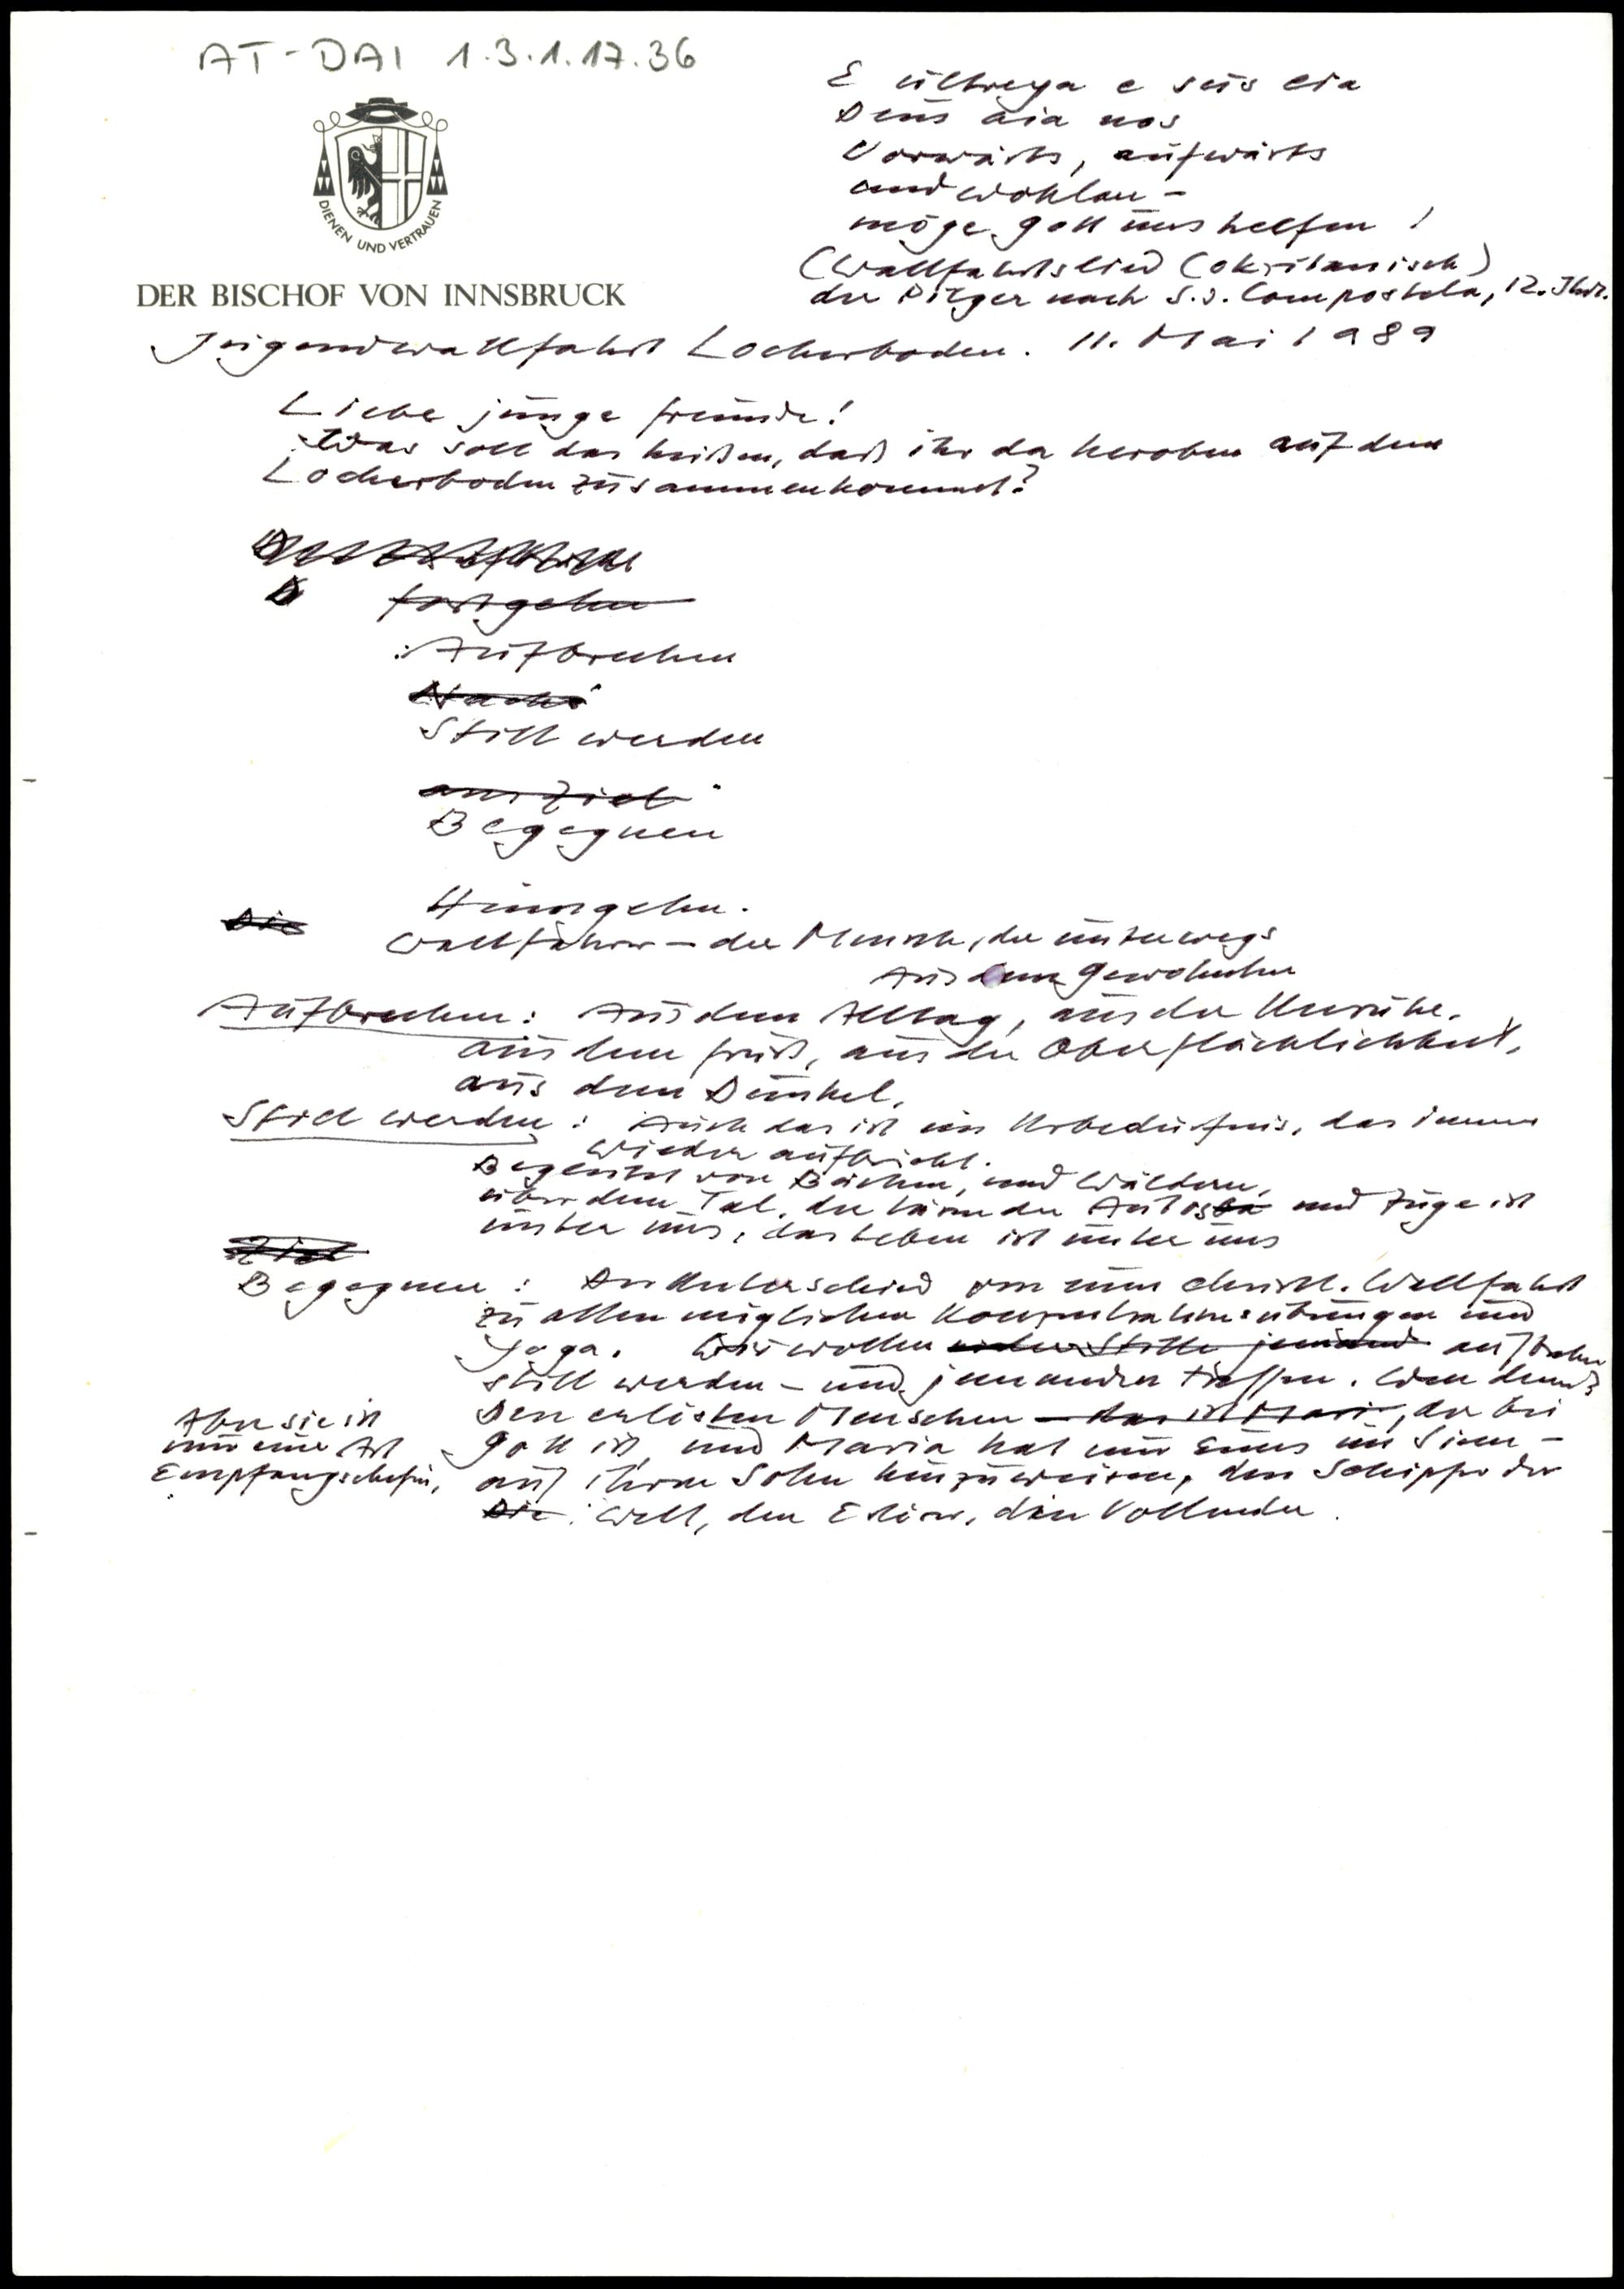 AT-DAI 1.3.1.17.36
E ultreya e sus eia
Deus aia nos
Vorwärts, aufwärts
und wohlan -
möge Gott uns helfen!
(Wallfahrtslied (okzitanisch)
der Pilger nach S.J. Compostela, 12. Jhdt.
DIENEN UND VERTRAUEN
DER BISCHOF VON INNSBRUCK
Jugendwallfahrt Locherboden. 11. Mai 1989
Liebe junge Freunde!
Was soll das heißen, daß ihr da heroben auf dem
Locherboden zusammenkommt?
D fortgehen
: Aufbrechen
Nacht
Still werden
am Ziel
Begegnen
Heimgehen.
Die
Wallfahrer - der Mensch, der unterwegs
Aus dem Gewohnten
Aufbrechen: Aus dem Alltag, aus der Unruhe.
aus dem Frust, aus der Oberflächlichkeit,
aus dem Dunkel.
Still werden: Auch das ist ein Urbedürfnis, das immer
wieder aufbricht.
Begleitet von Bächen, und Wäldern,
über dem Tal. der Lärm der Autos und Züge ist
unter uns, das Leben ist unter uns
Ziel
Begegnen: Der Unterschied von einer christl. Wallfahrt
zu allen möglichen Konzentrationsübungen und
Yoga. Wir wollen in der Stille jemand aufstehen
still werden - und jemanden treffen. Wen denn?
Den erlösten Menschen - das ist Mari, der bei
Gott ist, und Maria hat nur Eines im Sinn -
auf ihren Sohn hinzuweisen, den Schöpfer der
Die Welt, den Erlöser, den Vollender.
Aber sie ist
nur eine Art
Empfangschefin,